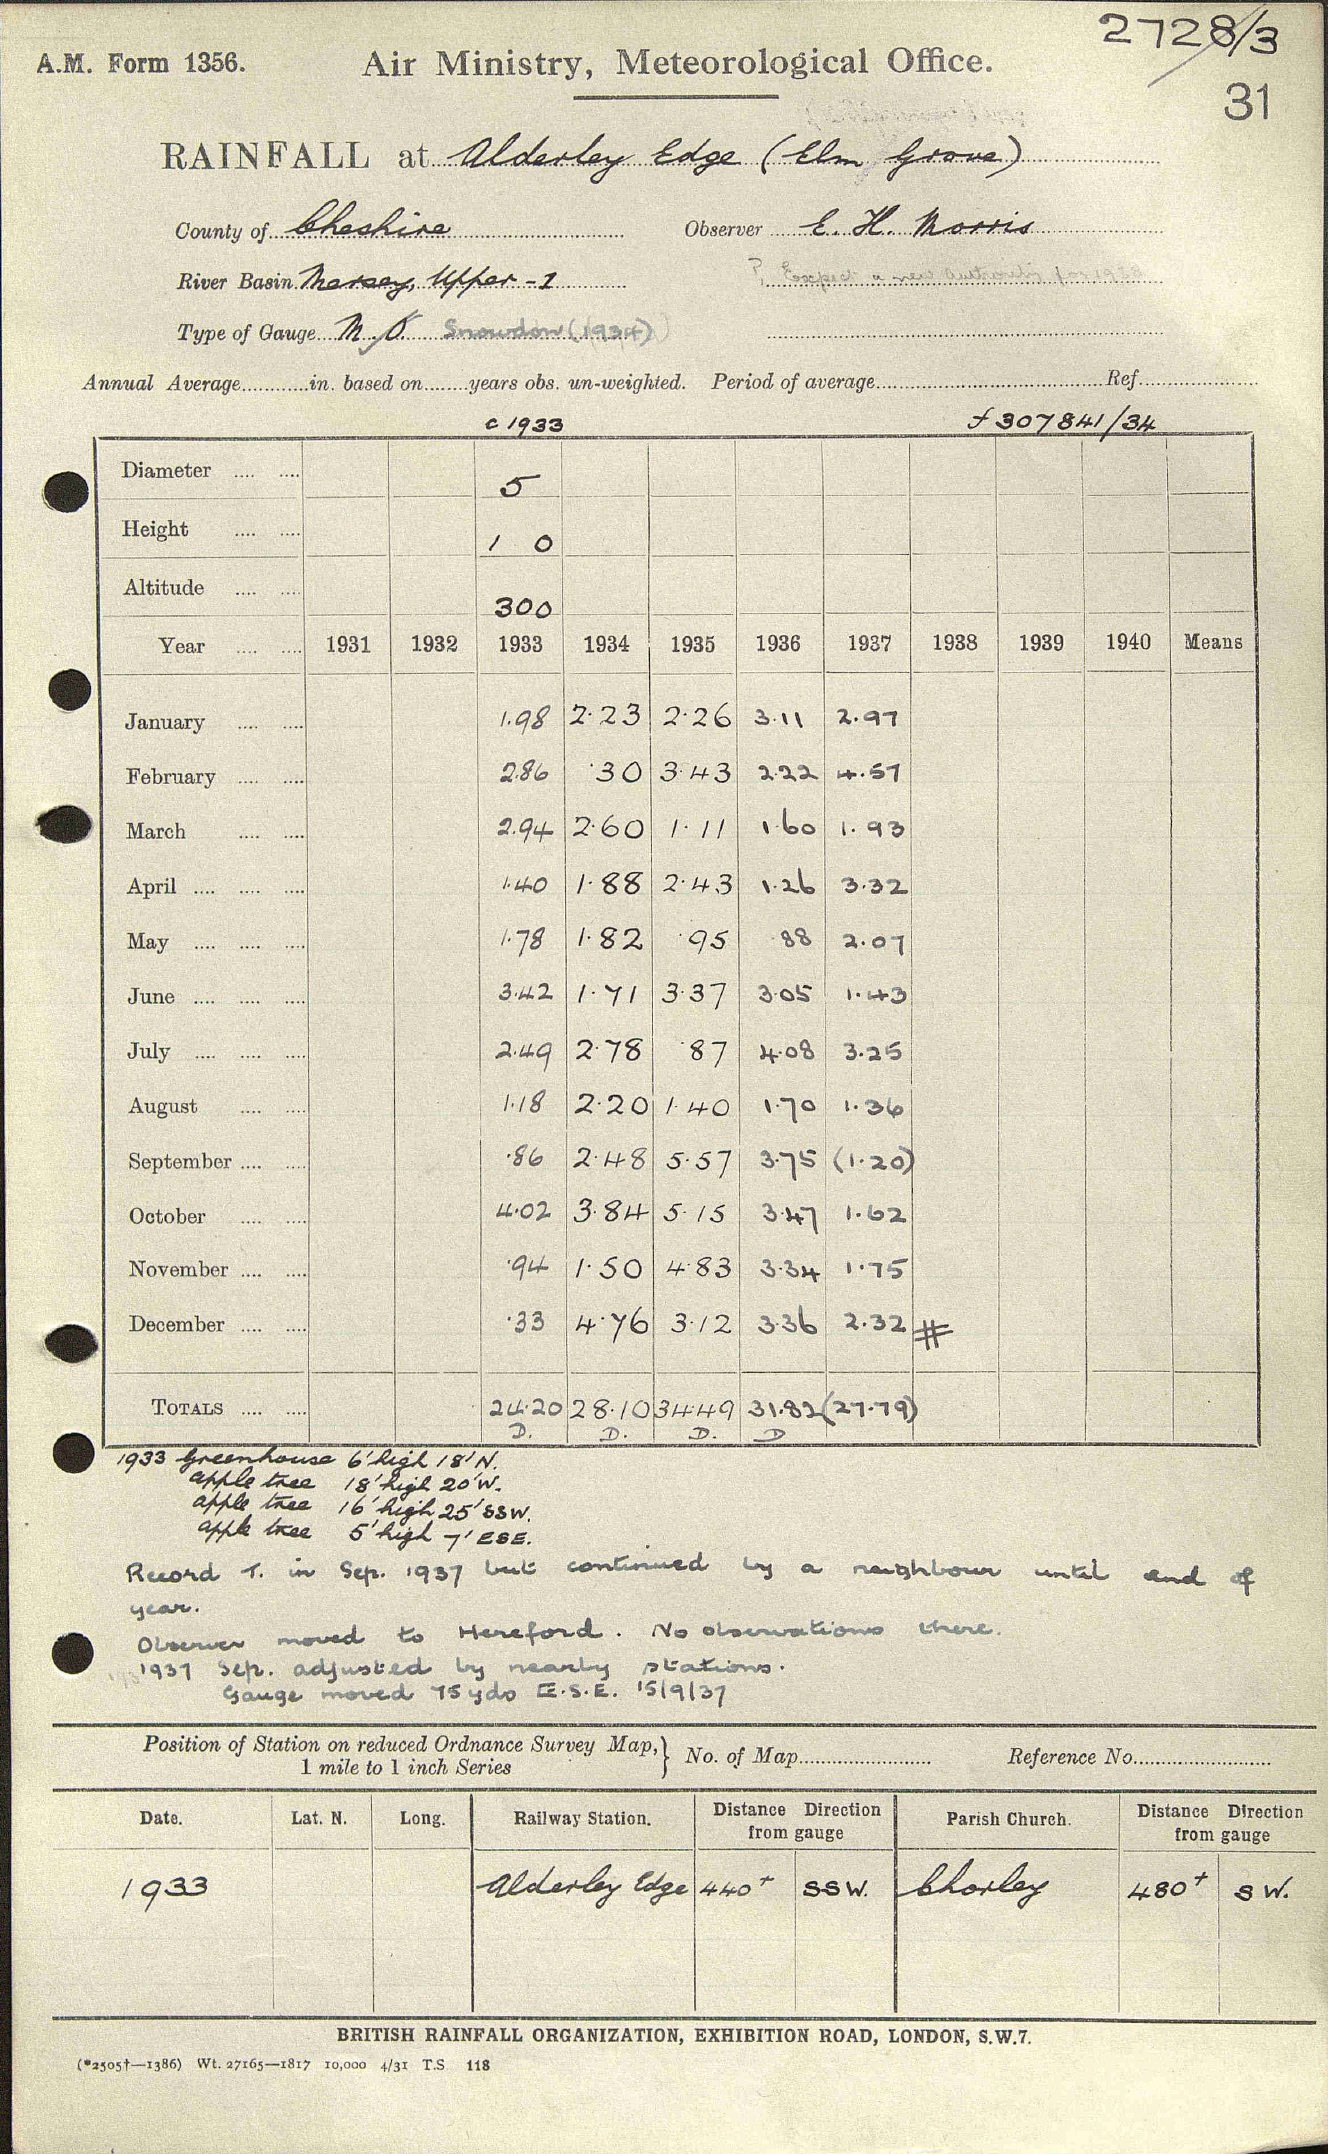 2728/3
A.M. Form 1356. Air Ministry, Meteorological Office.
31
RAINFALL at Alderley Edge (Elm Grove)
County of Cheshire Observer E. H. Morris
River Basin Mersey, Upper - 1 ? Expect a new authority for 1938
Type of Gauge M.O. Snowdon (1934)
Annual Average............in. based on........years obs. un-weighted. Period of average........................................Ref.....................
c 1933 f 307841/34
Diameter .... .... 5
Height .... .... 1 0
Altitude .... .... 300
Year .... .... 1931 1932 1933 1934 1935 1936 1937 1938 1939 1940 Means
January .... .... 1.98 2.23 2.26 3.11 2.97
February .... .... 2.86 .30 3.43 2.22 4.57
March .... .... 2.94 2.60 1.11 1.60 1.93
April .... .... .... 1.40 1.88 2.43 1.26 3.32
May .... .... .... 1.78 1.82 .95 .88 2.07
June .... .... .... 3.42 1.71 3.37 3.05 1.43
July .... .... .... 2.49 2.78 .87 4.08 3.25
August .... .... 1.18 2.20 1.40 1.70 1.36
September .... .... .86 2.48 5.57 3.75 (1.20)
October .... .... 4.02 3.84 5.15 3.47 1.62
November .... .... .94 1.50 4.83 3.34 1.75
December .... .... .33 4.76 3.12 3.36 2.32 #
TOTALS .... .... 24.20 28.10 34.49 31.82 (27.79)
D. D. D. D
1933 Greenhouse 6' high 18' N.
apple tree 18' high 20' W.
apple tree 16' high 25' SSW.
apple tree 5' high 7' ESE.
Record T. in Sep. 1937 but continued by a neighbour until end of
year.
Observer moved to Hereford. No observations there.
1937 Sep. adjusted by nearby stations.
Gauge moved 75 yds E.S.E. 15/9/37
Position of Station on reduced Ordnance Survey Map, } No. of Map........................ Reference No.........................
1 mile to 1 inch Series
Date. Lat. N. Long. Railway Station. Distance Direction from gauge Parish Church. Distance Direction from gauge
1933 Alderley Edge 440+ SSW. Chorley 480+ SW.
BRITISH RAINFALL ORGANIZATION, EXHIBITION ROAD, LONDON, S.W.7.
(*2505†—1386) Wt. 27165—1817 10,000 4/31 T.S. 118